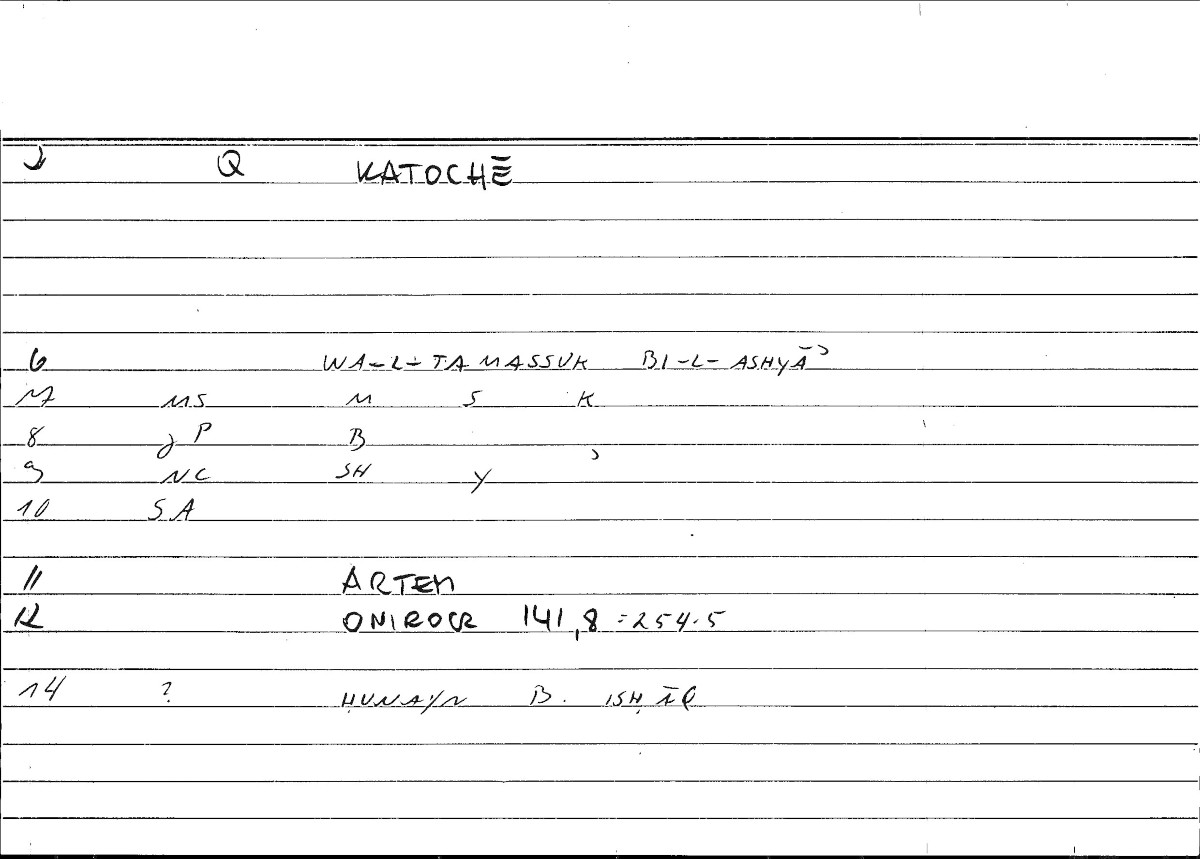 Q KATOCHĒ
6 WA-L-TAMASSUK BI-L-ASHYĀʾ
7 MS M S K
8 P B
9 NC SH Y ʾ
10 SA
11 ARTEM
12 ONIROCR 141,8 = 254.5
14 ? ḤUNAYN B. ISḤĀQ